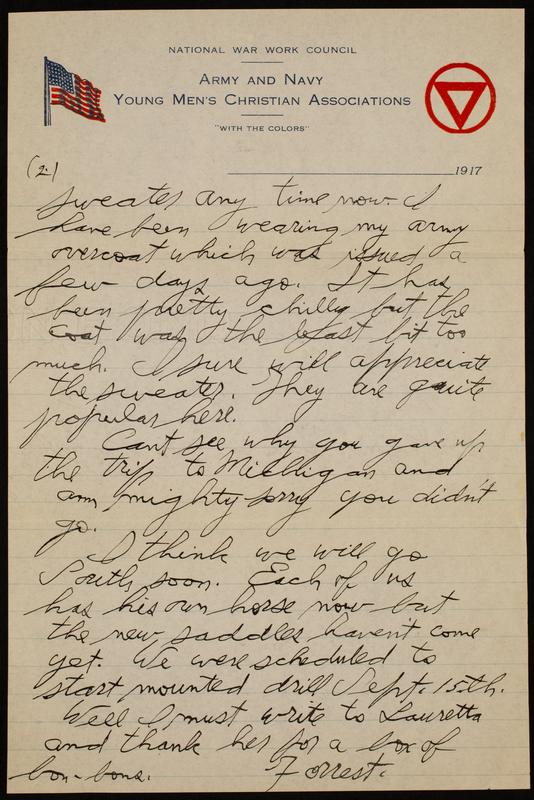 NATIONAL WAR WORK COUNCIL
ARMY AND NAVY
YOUNG MEN'S CHRISTIAN ASSOCIATIONS
"WITH THE COLORS"
1917
(2)
sweater any time now. I
have been wearing my army
overcoat which was issued a
few days ago. It has
been pretty chilly but the
coat was the least bit too
much. I sure will appreciate
the sweater. They are quite
popular here.
Cant see why you gave up
the trip to Michigan and
am mighty sorry you didn't
go.
I think we will go
South soon. Each of us
has his own horse now but
the new saddles haven't come
yet. We were scheduled to
start mounted drill Sept. 15th.
Well I must write to Lauretta
and thank her for a box of
bon-bons. Forrest.